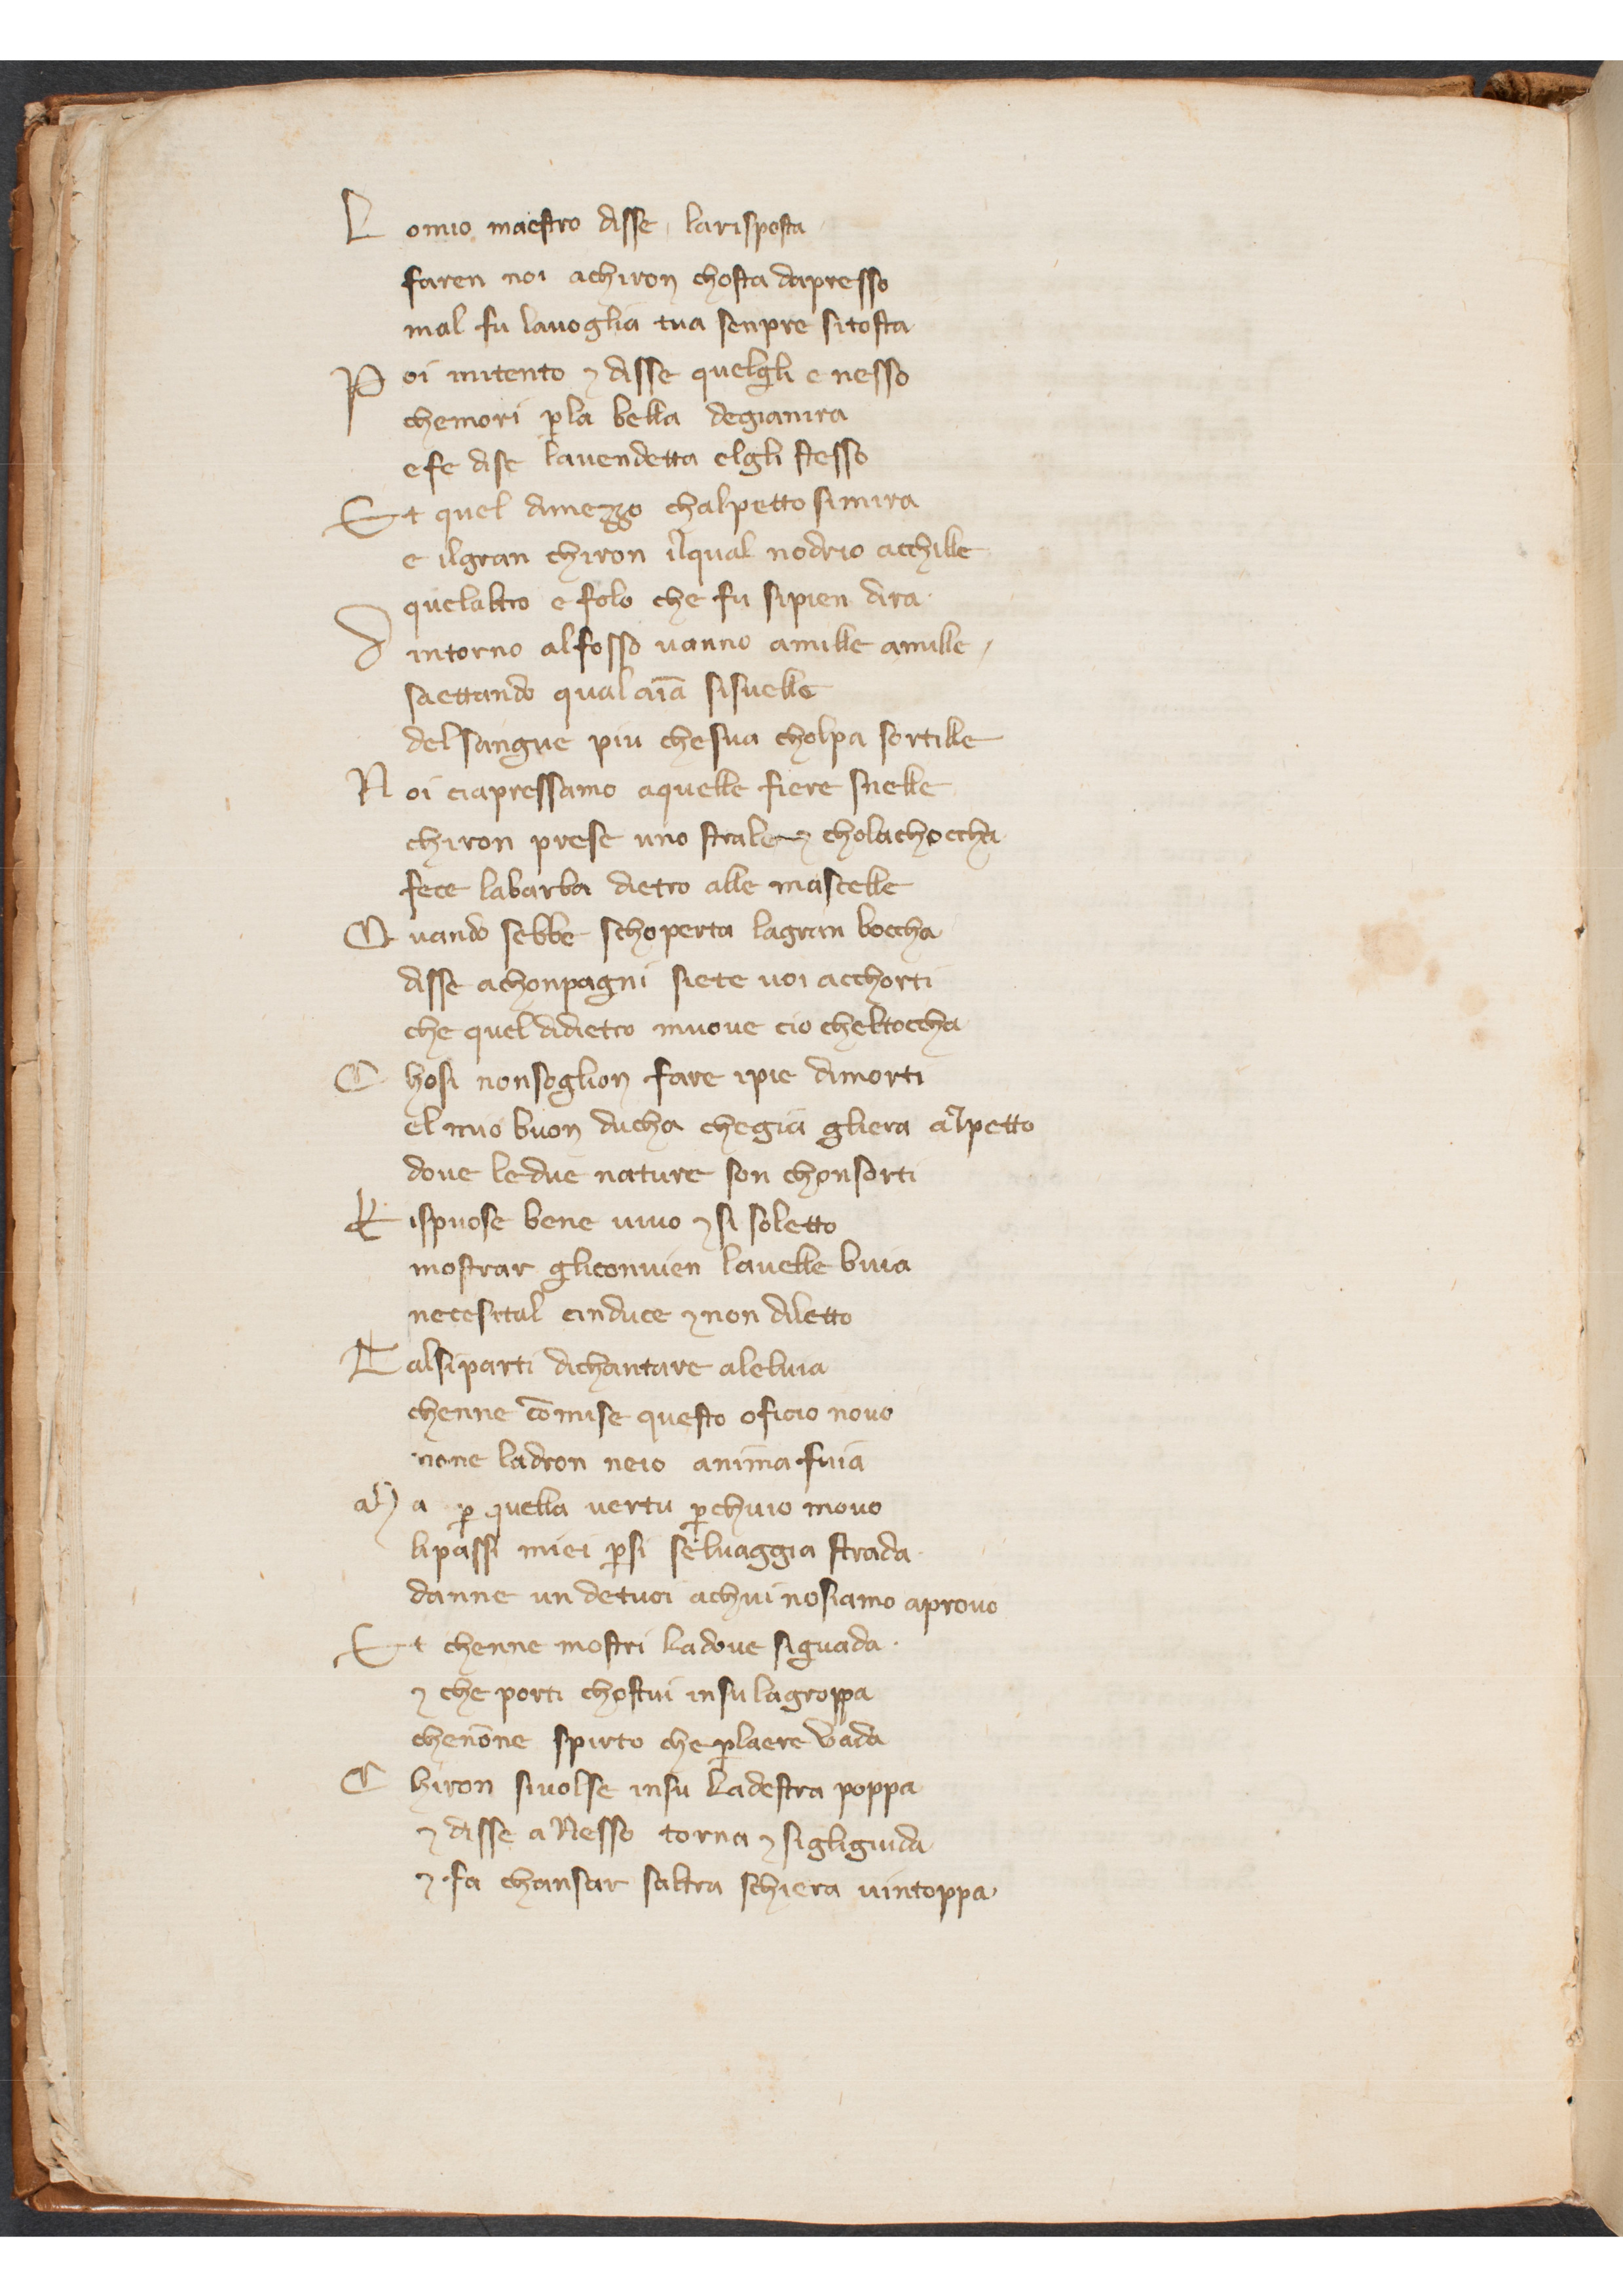 L omio maestro disse, larisposta
faren noi achiron chosta dapresso
mal fu lauoglia tua senpre sitosta
P oi mitento ⁊ disse quelgli e nesso
chemori p̱la bella degianira
efe dise lauendetta elgli stesso
Et quel dimezzo chalpetto simira
e ilgran chiron ilqual nodrio acchille
quelaltro e folo che fu sipien dira.
D intorno alfosso uanno amille amille,
saettando qual aīa sisuelle
delsangue piu chesua cholpa sortille
N oi ciapressamo aquelle fiere snelle
chiron prese uno strale ⁊ cholachoccha
fece labarba dietro alle mascelle
Q uando sebbe schoperta lagran boccha
disse achonpagni siete uoi acchorti
che quel didietro muoue cio cheltoccha
C hosi nonsoglion fare ipie dimorti
el mio buon ducha chegia gliera alpetto
doue ledue nature son chonsorti
R ispuose bene uiuo ⁊ si soletto
mostrar gliconuien lauelle buia
necesital cinduce ⁊ non diletto
T alsiparti dichantare aleluia
chenne cōmise questo oficio nouo
none ladron neio anima fuia
M a p̱ quella uertu p̱chuio mouo
lipassi miei p̱si seluaggia strada.
danne un detuoi achui nosiamo aprouo
Et chenne mostri ladoue siguada.
⁊ che porti chostui insu lagroppa
chenōne spirto che p̱laere vada
C hiron siuolse insu ladestra poppa
⁊ disse a Nesso torna ⁊ sigliguida
⁊ fa chansar saltra schiera uintoppa